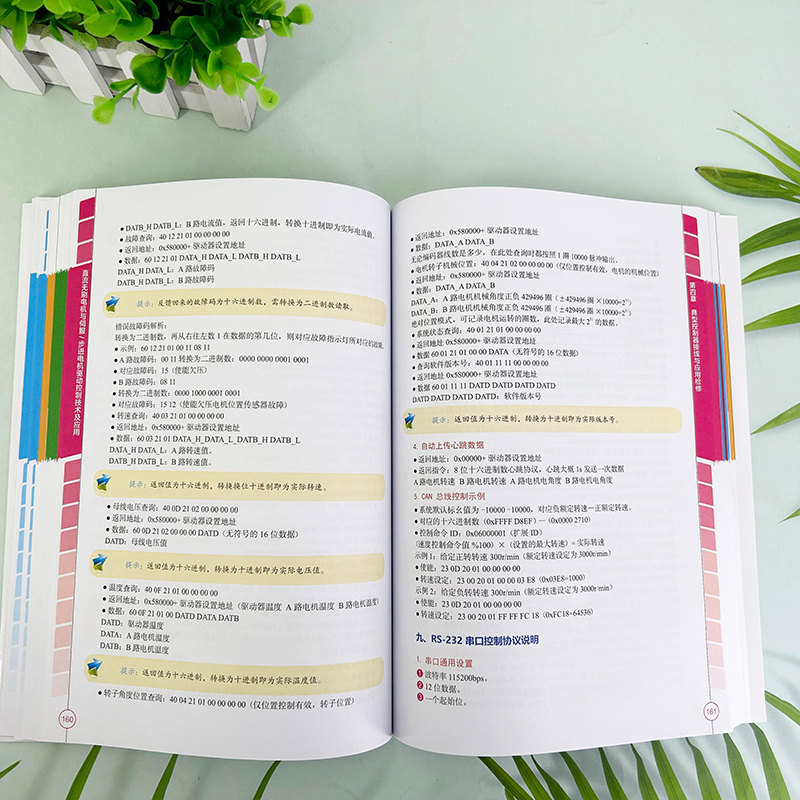 ● DATB_H DATB_L：B 路电流值，返回十六进制，转换十进制即为实际电流值。
● 故障查询：40 12 21 01 00 00 00 00
● 返回地址：0x580000+ 驱动器设置地址
● 数据：60 12 21 01 DATA_H DATA_L DATB_H DATB_L
DATA_H DATA_L：A 路故障码
DATB_H DATB_L：B 路故障码
提示：反馈回来的故障码为十六进制数，需转换为二进制数读取。
错误故障码解析：
转换为二进制数，再从右往左数 1 在数据的第几位，则对应故障指示灯所对应的故障
● 示例：60 12 21 01 00 11 08 11
● A 路故障码：00 11 转换为二进制数：0000 0000 0001 0001
● 对应故障码：15（使能欠压）
● B 路故障码：08 11
● 转换为二进制数：0000 1000 0001 0001
● 对应故障码：15 12（使能欠压电机位置传感器故障）
● 转速查询：40 03 21 01 00 00 00 00
● 返回地址：0x580000+ 驱动器设置地址
● 数据：60 03 21 01 DATA_H_DATA_L_DATB_H DATB_L
DATA_H DATA_L：A 路转速值。
DATB_H DATB_L：B 路转速值。
提示：返回值为十六进制，转换换位十进制即为实际转速。
● 母线电压查询：40 0D 21 02 00 00 00 00
● 返回地址：0x580000+ 驱动器设置地址
● 数据：60 0D 21 02 00 00 00 DATD（无符号的 16 位数据）
DATD：母线电压值
提示：返回值为十六进制，转换为十进制即为实际电压值。
● 温度查询：40 0F 21 01 00 00 00 00
● 返回地址：0x580000+ 驱动器设置地址（驱动器温度 A 路电机温度 B 路电机温度）
● 数据：60 0F 21 01 00 DATD DATA DATB
DATD：驱动器温度
DATA：A 路电机温度
DATB：B 路电机温度
提示：返回值为十六进制，转换为十进制即为实际温度值。
● 转子角度位置查询：40 04 21 01 00 00 00 00（仅位置控制有效，转子位置）
160
直流无刷电机与伺服、步进电机驱动控制技术及应用
● 返回地址：0x580000+ 驱动器设置地址
● 数据：DATA_A DATA_B
无论编码器线数是多少，在此处查询时都按照 1 圈 10000 脉冲输出。
● 电机转子机械位置：40 04 21 02 00 00 00 00（仅位置控制有效，电机的机械位置）
● 返回地址：0x580000+ 驱动器设置地址
● 数据：DATA_A DATA_B
DATA_A：A 路电机机械角度正负 429496 圈（±429496 圈 ×10000=2³¹）
DATA_B：B 路电机机械角度正负 429496 圈（±429496 圈 ×10000=2³¹）
绝对位置模式，可记录电机运转的圈数，此处记录最大 2³¹ 的数据。
● 系统状态查询：40 01 21 01 00 00 00 00
● 返回地址 0x580000+ 驱动器设置地址
● 数据 60 01 21 01 00 00 DATA（无符号的 16 位数据）
● 查询软件版本号：40 01 11 11 00 00 00 00
● 返回地址 0x580000+ 驱动器设置地址
● 数据 60 01 11 11 DATD DATD DATD DATD
DATD DATD DATD DATD：软件版本号
提示：返回值为十六进制，转换为十进制即为实际版本号。
4. 自动上传心跳数据
● 返回地址：0x00000+ 驱动器设置地址
● 返回指令：8 位十六进制数心跳协议，心跳大概 1s 发送一次数据
A 路电机转速 B 路电机转速 A 路电机电角度 B 路电机电角度
5. CAN 总线控制示例
● 系统默认标幺值为 −10000 ~10000，对应负额定转速—正额定转速。
● 对应的十六进制数（0xFFFF D8EF）—（0x0000 2710）
● 控制命令 ID：0x06000001（扩展 ID）
（速度控制命令值 %100）×（设置的最大转速）= 实际转速
示例 1：给定正转转速 300r/min（额定转速设定为 3000r/min）
● 使能：23 0D 20 01 00 00 00 00
● 转速设定：23 00 20 01 00 00 03 E8（0x03E8=1000）
示例 2：给定负转转速 300r/min（额定转速设定为 3000r/min）
● 使能：23 0D 20 01 00 00 00 00
● 转速设定：23 00 20 01 FF FF FC 18（0xFC18=64536）
九、RS-232 串口控制协议说明
1. 串口通用设置
❶ 波特率 115200bps。
❷ 12 位数据。
❸ 一个起始位。
161
第四章 典型控制器接线与应用检修